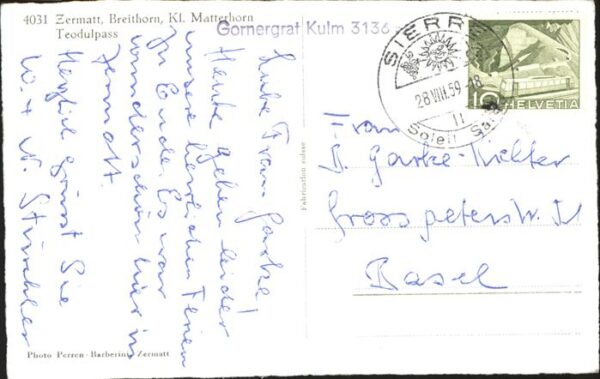 4031 Zermatt, Breithorn, Kl. Matterhorn
Teodulpass
Gornergrat Kulm 3136
SIERRE
28 VIII.59
Soleil
10
HELVETIA
Liebe Frau Garke!
Heute gehen leider
unsere herrlichen Ferien
zu Ende. Es war
wunderschön hier in
Zermatt.
Herzlich grüsst Sie
W. + N. Stirchler
Frau
Garke-Richter
Grosspeterstr.
Basel
Fabrication suisse
Photo Perren-Barberini, Zermatt